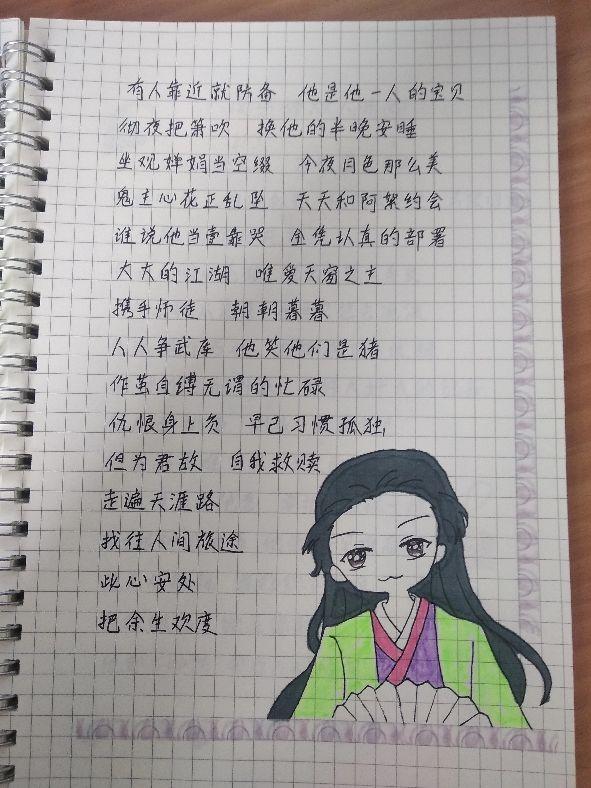 有人靠近就防备 他是他一人的宝贝
彻夜把箫吹 换他的半晚安睡
坐观婵娟当空缀 今夜月色那么美
鬼主心花正乱坠 天天和阿絮约会
谁说他当壹靠哭 全凭认真的部署
大大的江湖 唯爱天窗之主
携手师徒 朝朝暮暮
人人争武库 他笑他们是猪
作茧自缚无谓的忙碌
仇恨身上负 早已习惯孤独
但为君故 自我救赎
走遍天涯路
找往人间旅途
此心安处
把余生欢度